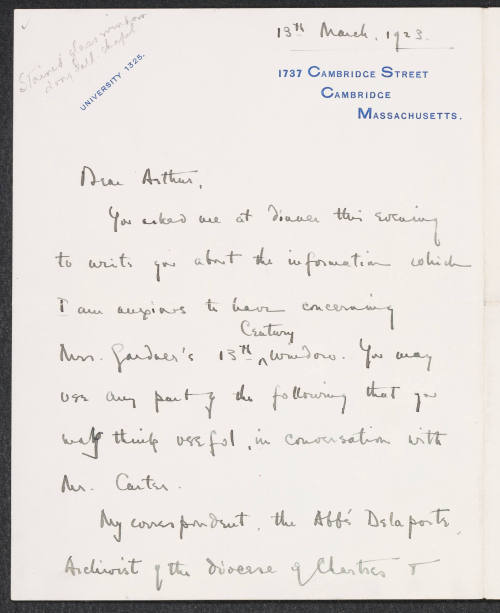 Stained glass window
Long Hall chapel
UNIVERSITY 1325.
13th March, 1923.
1737 CAMBRIDGE STREET
CAMBRIDGE
MASSACHUSETTS.
Dear Arthur,
You asked me at dinner this evening
to write you about the information which
I am anxious to have concerning
Century
Mrs. Gardner's 13th ^ window. You may
use any part of the following that you
may think useful, in conversation with
Mr. Carter.
My correspondent, the Abbé Delaporte,
Archivist of the diocese of Chartres &